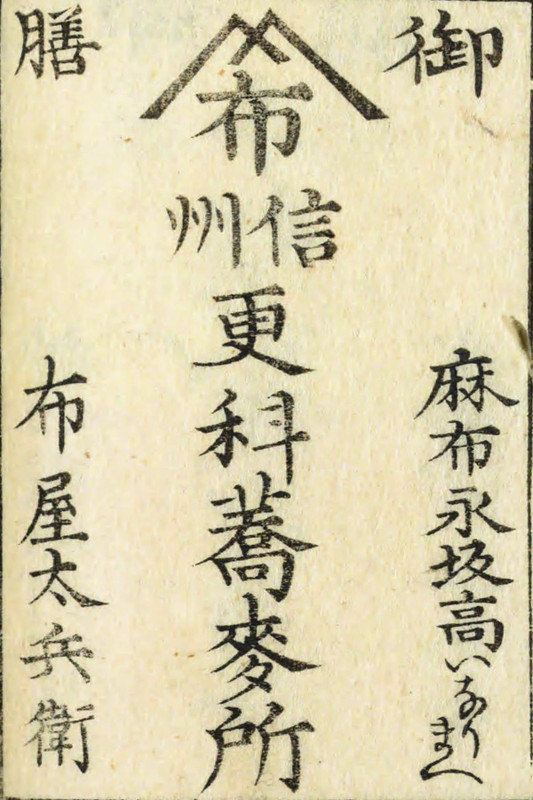 御膳
布
信州
更科蕎麥所
麻布永坂高いなりまへ
布屋太兵衛